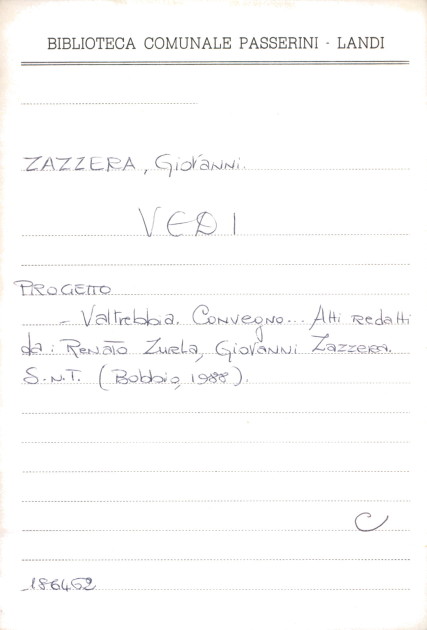 BIBLIOTECA COMUNALE PASSERINI - LANDI
ZAZZERA, Giovanni.
VEDI
PROGETTO
- Valtrebbia. Convegno... Atti redatti
da: Renato Zurla, Giovanni Zazzera.
S.N.T. (Bobbio, 1988).
C
186462